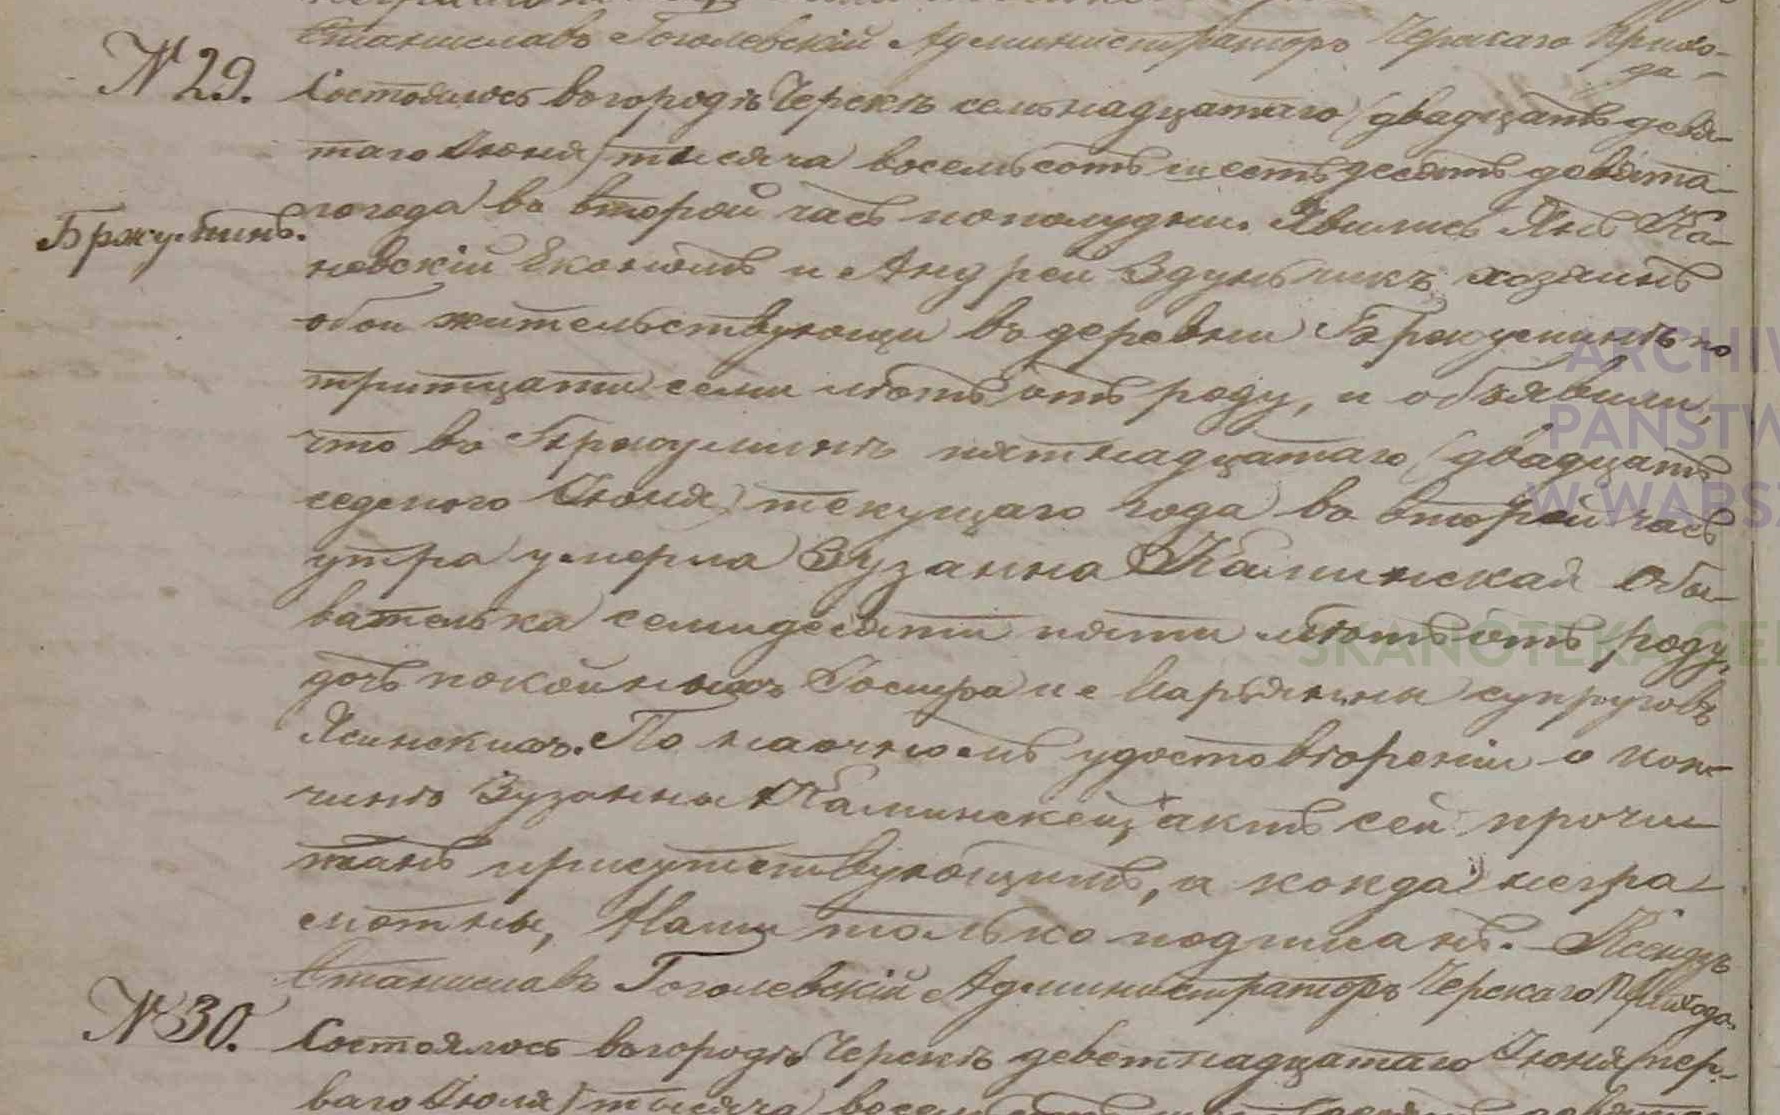 Станиславъ Гоголевскій Администраторъ Черскаго Прихо-
да
№ 29.
Состоялось въ городѣ Черскѣ семьнадцатаго (двадцать девя-
таго Іюня) тысяча восемьсотъ шестьдесятъ девята-
Бржуминъ.
го года въ второй часъ пополудни. Явились Янъ Ка-
невскій Економъ и Андрей Здуньчикъ хозяинъ
обои жительствующи въ деревни Бржуминѣ по
тритцати семи лѣтъ отъ роду, и объявили,
что въ Бржуминѣ пятнадцатаго (двадцать
седмого Іюня) текущаго года въ второй часъ
утра умерла Зузанна Каминская Обы-
вателька семидесяти пяти лѣтъ отъ роду,
дочь покойныхъ и Маріянны супруговъ
Ясинскихъ. По наочномъ удостовѣреніи о кон-
чинѣ Зузанны Каминскей, актъ сей прочи-
танъ присутствующимъ, а когда негра-
мотны, Нами только подписанъ. Ксендзъ
Станиславъ Гоголевскій Администраторъ Черскаго Прихода.
№ 30.
Состоялось въ городѣ Черскѣ деветнадцатаго Іюня (пер-
ваго Іюля) тысяча
ARCHIW
PAŃSTW
W WARSZ
SKANOTEKA GE